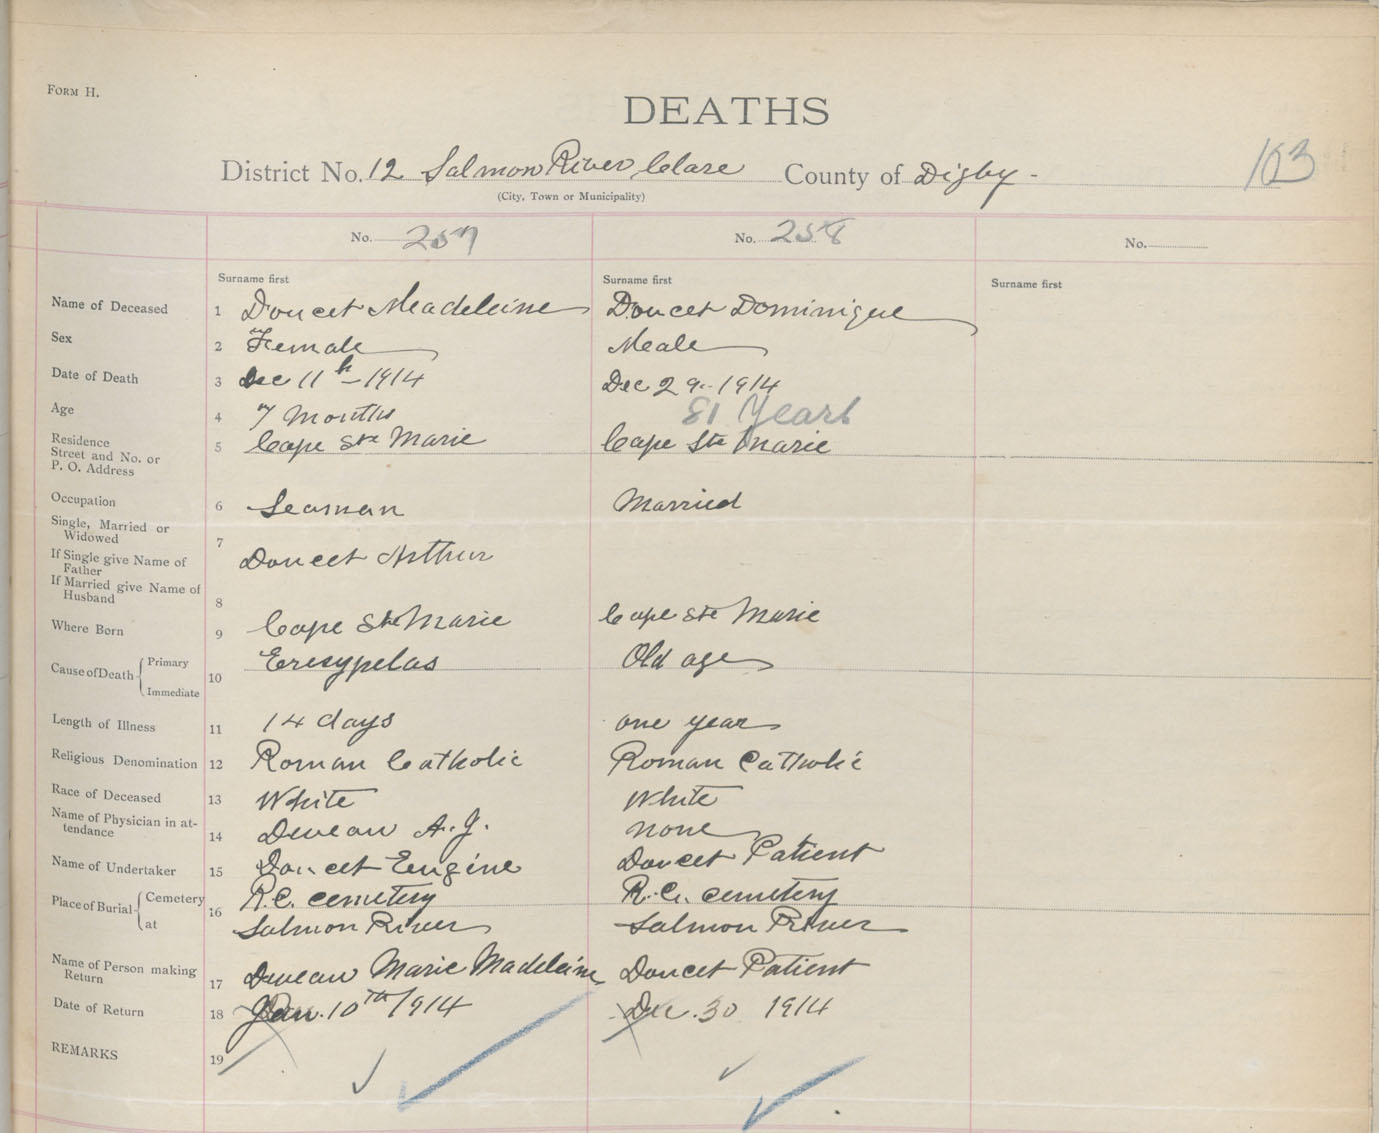 FORM H.
DEATHS
103
District No. 12 Salmon River, Clare County of Digby -
(City, Town or Municipality)
No. 257 No. 258 No.
Surname first Surname first Surname first
Name of Deceased 1 Doucet Madeleine Doucet Dominique
Sex 2 Female Meale
Date of Death 3 Dec 11th - 1914 Dec 29. 1914
Age 4 7 Months 81 Years
Residence
Street and No. or
P. O. Address
5 Cape Ste Marie Cape Ste Marie
Occupation 6 Seaman Married
Single, Married or
Widowed
7
If Single give Name of
Father
Doucet Arthur
If Married give Name of
Husband
8
Where Born 9 Cape Ste Marie Cape Ste Marie
Cause of Death Primary
Immediate
10 Eresypelas Old age
Length of Illness 11 14 days one year
Religious Denomination 12 Roman Catholic Roman Catholic
Race of Deceased 13 White White
Name of Physician in at-
tendance
14 Deveau A. J. none
Name of Undertaker 15 Doucet Eugine Doucet Patient
Place of Burial Cemetery
at
16 R.C. cemetery R.C. cemetery
Salmon River Salmon River
Name of Person making
Return
17 Deveau Marie Madeleine Doucet Patient
Date of Return 18 Jan. 10th 1914 Dec. 30 1914
REMARKS 19